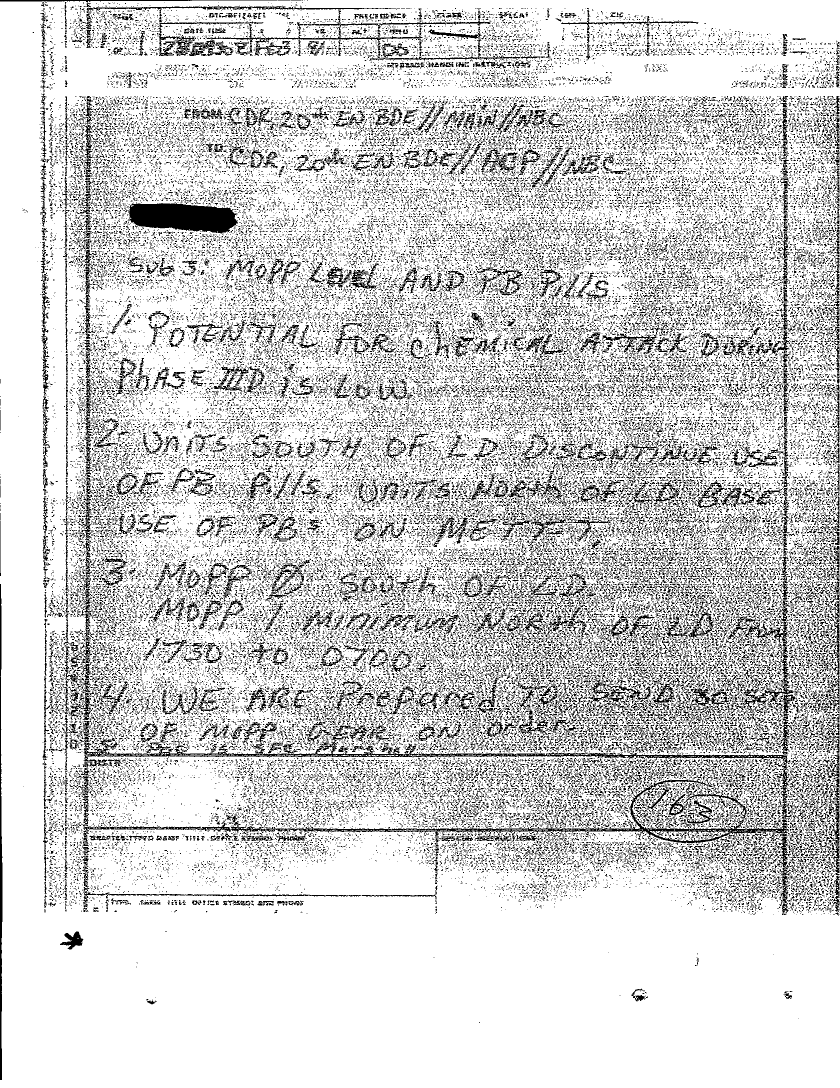 PAGE DTG/RELEASE TIME PRECEDENCE CLASS SPECAT LMF CIC
DATE TIME YR ACT INFO
OF FEB
MESSAGE HANDLING INSTRUCTIONS
FROM CDR, 20th EN BDE//MAIN//NBC
TO CDR, 20th EN BDE//ACP//NBC
SubJ: MOPP LEVEL AND PB Pills
1. POTENTIAL FOR ChEMICAL ATTACK DURING
PhASE IIID is LOW.
2. UNITS SOUTH OF LD DISCONTINUE USE
OF PB Pills. UNITS NORth OF LD BASE
USE OF PB's ON METT-T.
3. MOPP Ø South OF LD.
MOPP 1 MINIMUM NORth OF LD From
1730 to 0700.
4. WE ARE Prepared TO SEND 30 SETS
OF MOPP GEAR ON order.
5 POC is SFC Marshall
DISTR
163
DRAFTER TYPED NAME TITLE OFFICE SYMBOL PHONE SPECIAL INSTRUCTIONS
TYPED NAME TITLE OFFICE SYMBOL AND PHONE